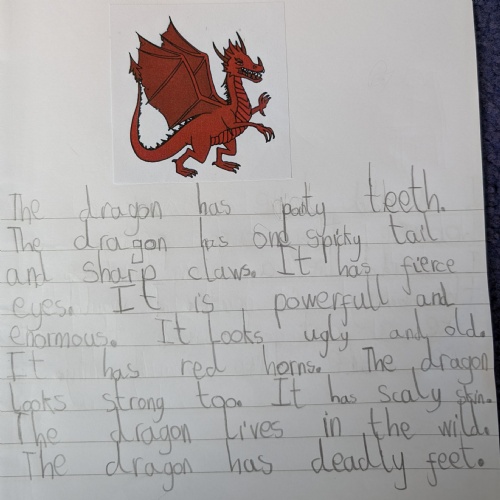 The dragon has poity teeth.
The dragon has one spicky tail
and sharp claws. It has fierce
eyes. It is powerfull and
enormous. It looks ugly and old.
It has red horns. The dragon
Looks strong too. It has scaly skin.
The dragon lives in the wild.
The dragon has deadly feet.